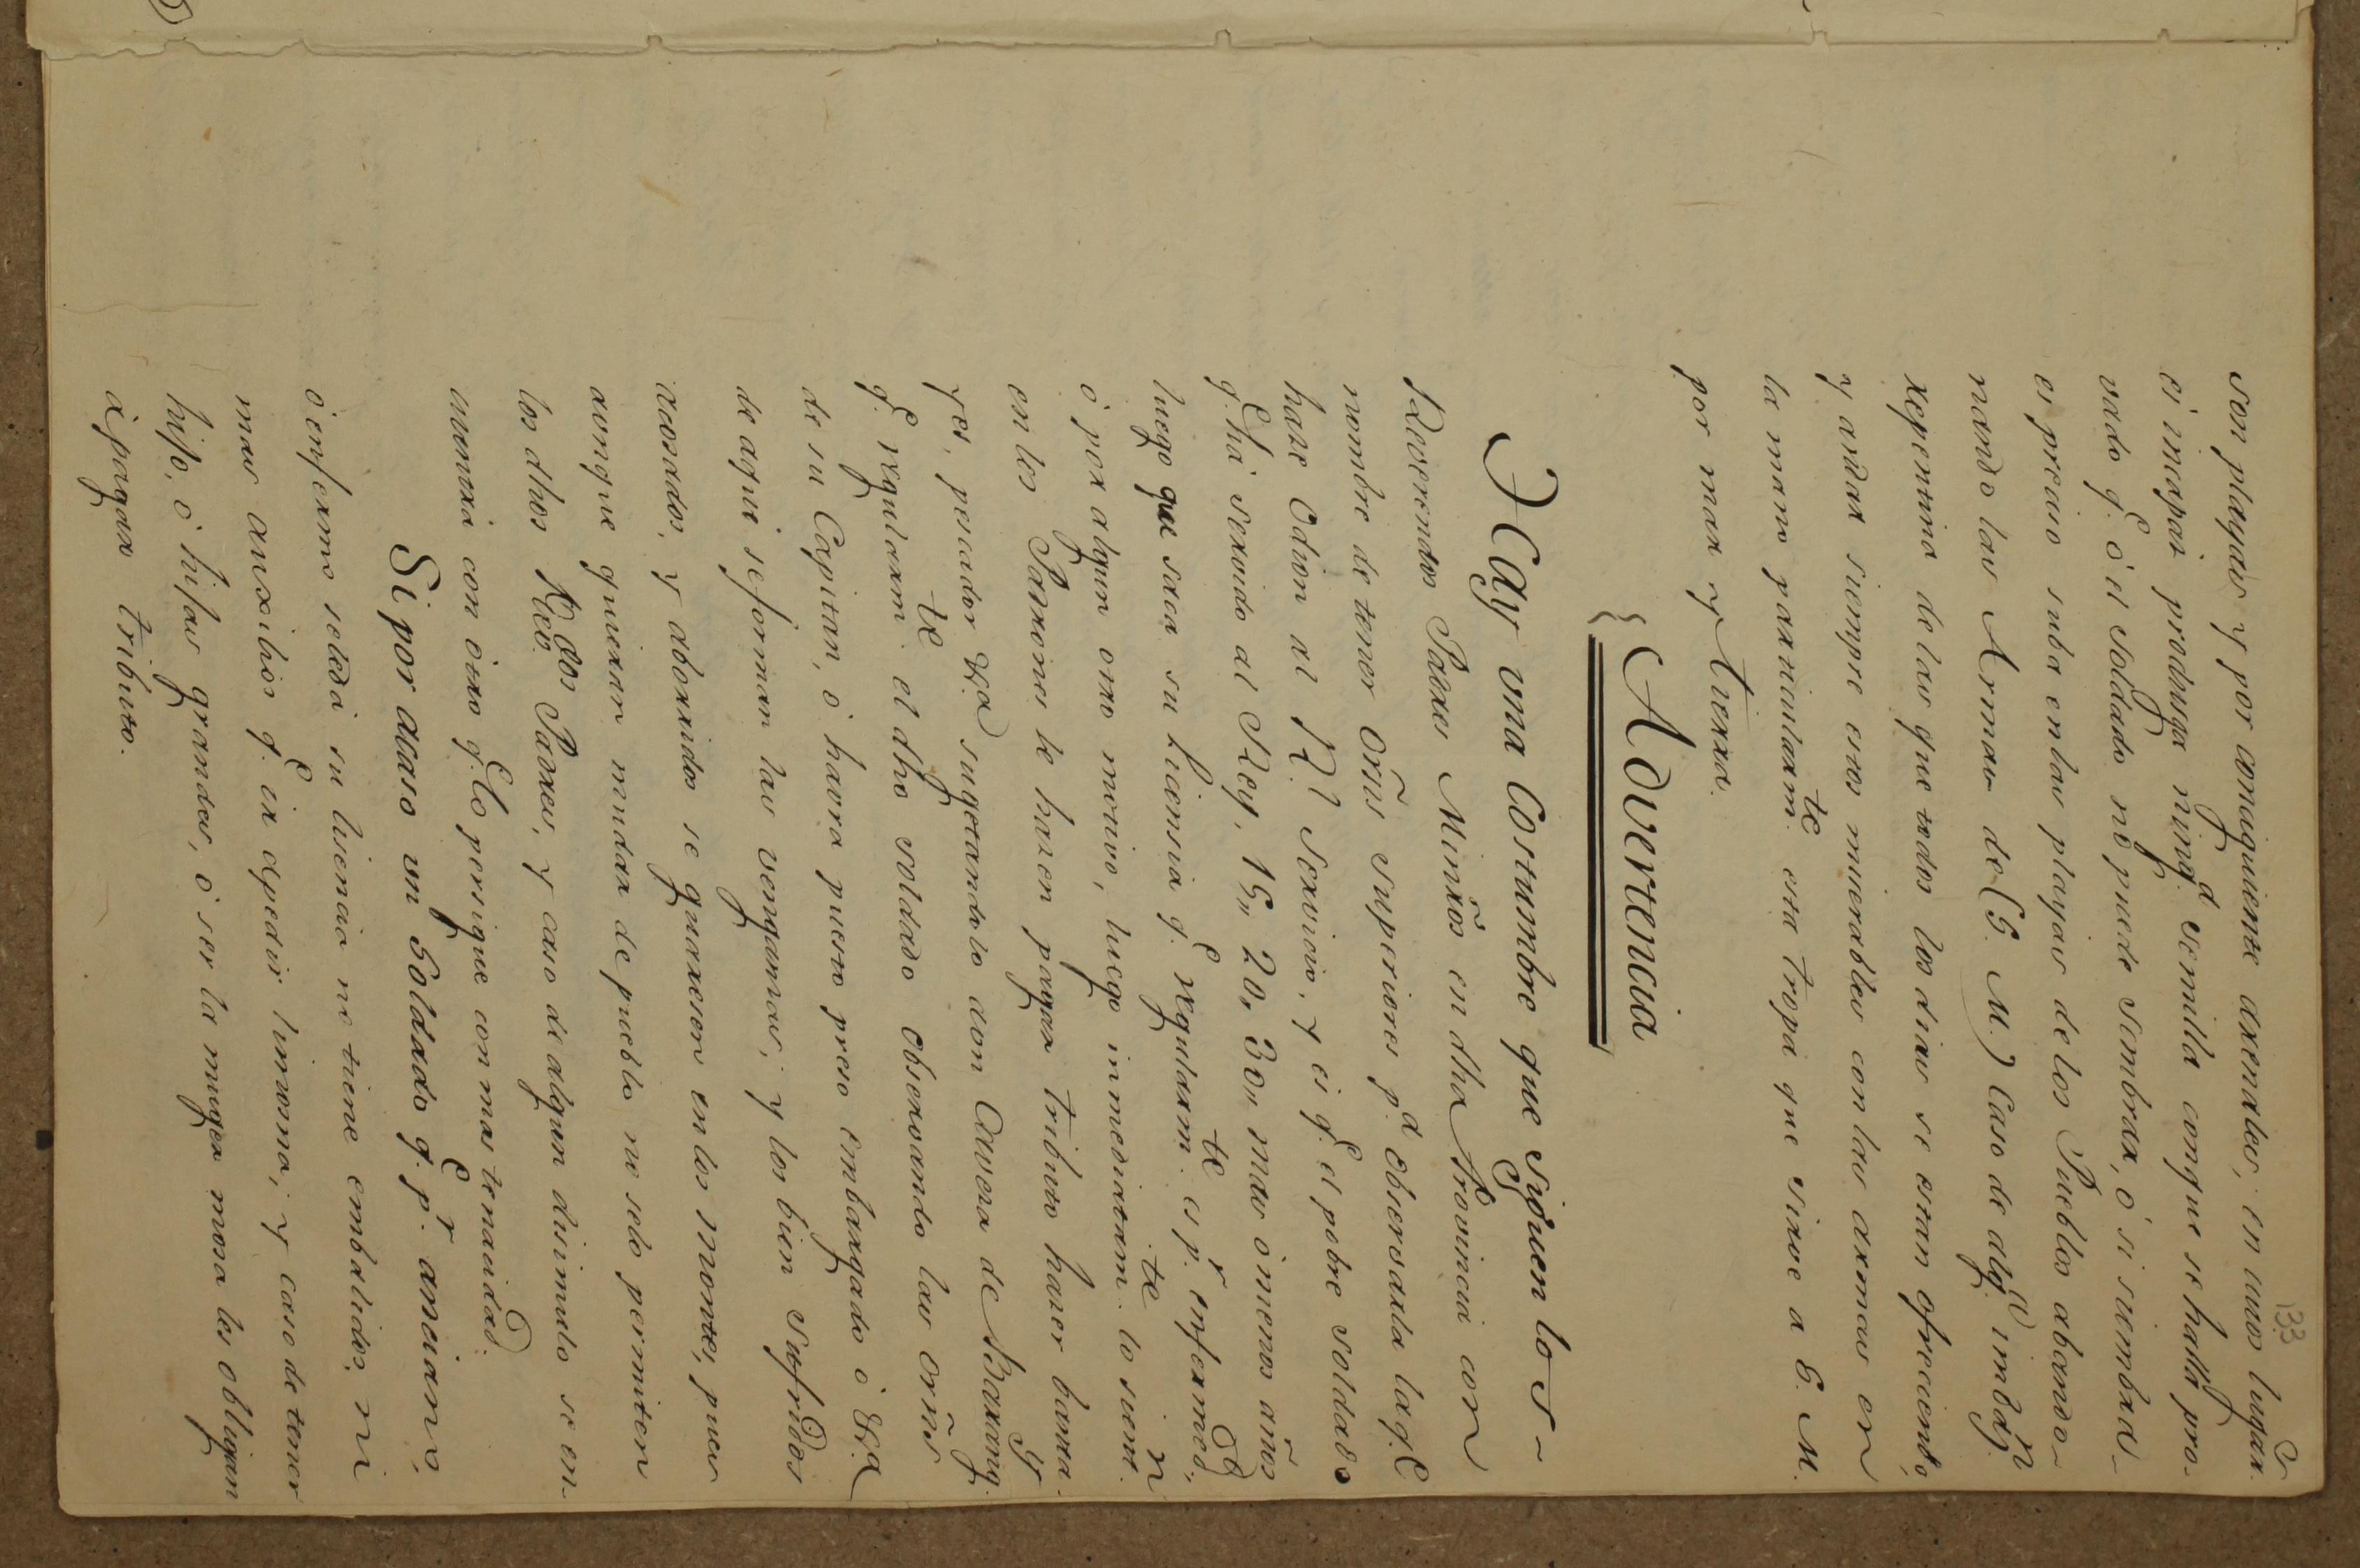 133
son playas y por consiguiente arenales, en unos lugar.s
ei incapai produzga ning.a semilla conque se halla pro-
vado q.e ó el soldado no puede sembrar, ó si siembra-
es preciso suba enlas playas delos Pueblos abando-
nando las Armas de (S. M.) Caso de alg.a imbaz.n
repentina delas que todos los dias se estan ofreciendo,
y andar siempre esos miserables con las armas en
la mano particularm.te esta tropa que sirve a S. M.
por mar y tierra.
Advertencia
Hay una Costumbre que siguen los-
Reverendos Paxes Minrõs en dha Provincia con
nombre de tener Orñs superiores p.a observarla laq.e
hase Odion al R.l Servicio, y es q.e el pobre soldado
q.e há servido al Rey, 15,, 20,, 30,, mas ó menos años
luego que saca su licensia q.e regularm.te es p.r enfermed.d,
ó por algun otro motivo, luego inmediatam.te lo sient.n
en los Parrones le hacen pagar tributo hacer banta-
yes, pescador &.a sugetandolo con Cavesa de Barang.y
q.e regularm.te el dho soldado observando las orñs
de su Capitan, ó havra puesto preso embargado ó &.a
de aqui se forman las venganzas, y los bien sufridos
acosados, y aborridos se guarecen en los montes, pues
aonque quieran mudar de pueblo no selo permiten
los dhos R.dos Paxes, y caso de algun disimulo se en-
cuentra con otro q.e lo persigue con mas tenacidad.
Si por acaso un Soldado q.e p.r anciano,
ó enfermo seleda su lisencia no tiene embalidos, ni
mas auxilios q.e ir apedir limosna, y caso de tener
hijo, ó hijas grandes, ó ser la muger mosa los obligan
á pagar tributo.